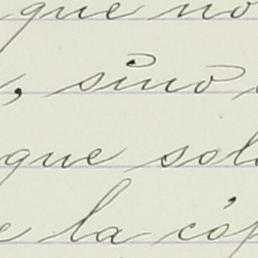 que no
, sino
que sol
e la cóp